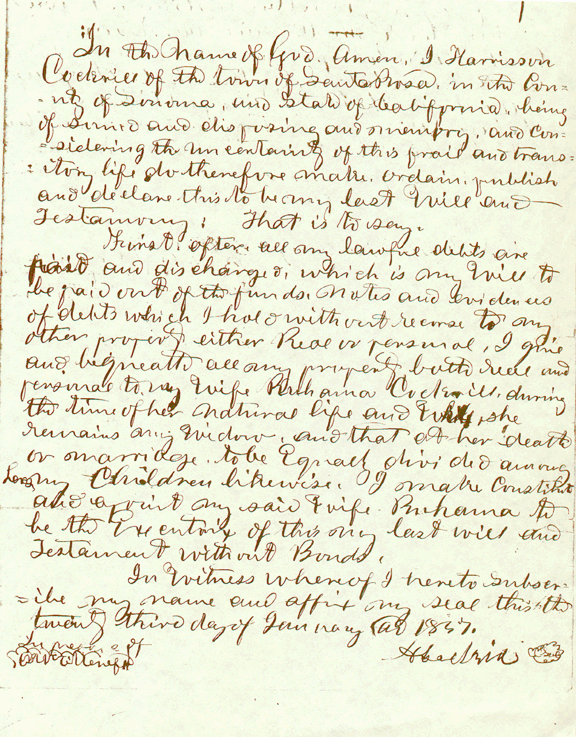 In the Name of God, Amen, I Harrisson
Cockrill of the town of Santa Rosa, in the Coun=
=ty of Sonoma, and State of California, being
of Sound and disposing and memory, and Con=
=sidering the uncertainty of this frail and trans=
=itory life do therefore make, ordain, publish
and declare this to be my last Will and
Testamony; That is to say.
First, after all my lawful debts are
paid and discharged, which is my Will to
be paid out of the funds, Notes and evidences
of debts which I hold without recorse to my
other property either Real or personal, I give
and bequeath all my property both real and
personal to my Wife Ruhama Cockrill, during
the time of her natural life and she
remains my Widow, and that at her death
or marriage, to be Equally divided among
my Children likewise. I make Constitute
and appoint my said Wife Ruhama to
be the Executrix of this my last will and
Testament without Bonds.
In Witness whereof I hereto subscr=
=ibe my name and affix my seal this the
twenty third day of January AD 1857.
In presence of